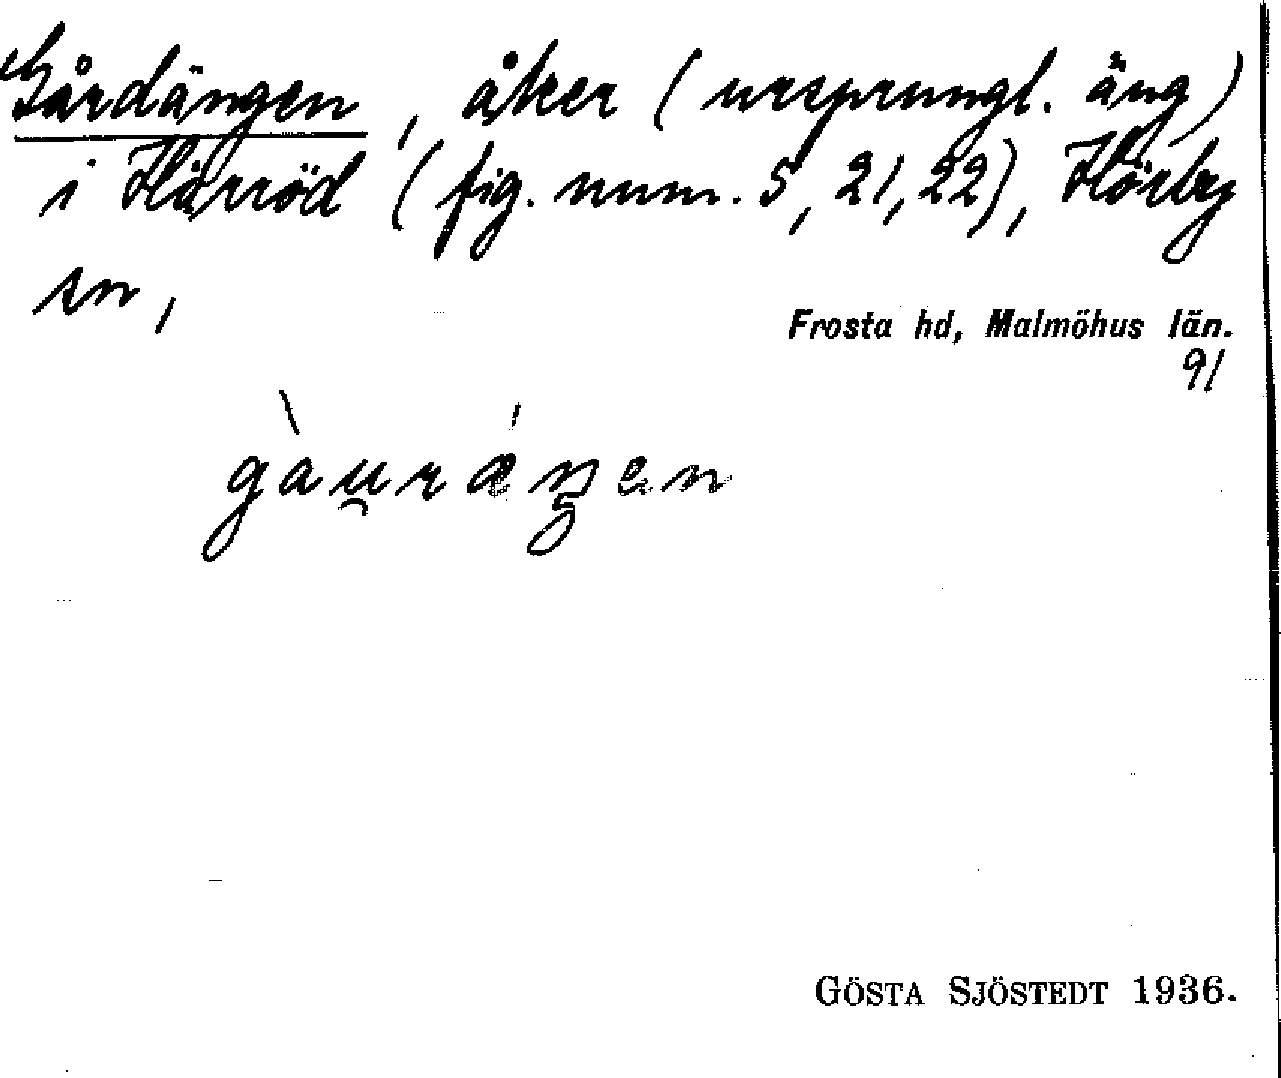 Gårdängen, åker (ursprungl. äng)
i Härröd (fig. num. 5, 21, 22), Hörby
sn,
Frosta hd, Malmöhus län.
91
gàu̯rǽŋen
GÖSTA SJÖSTEDT 1936.